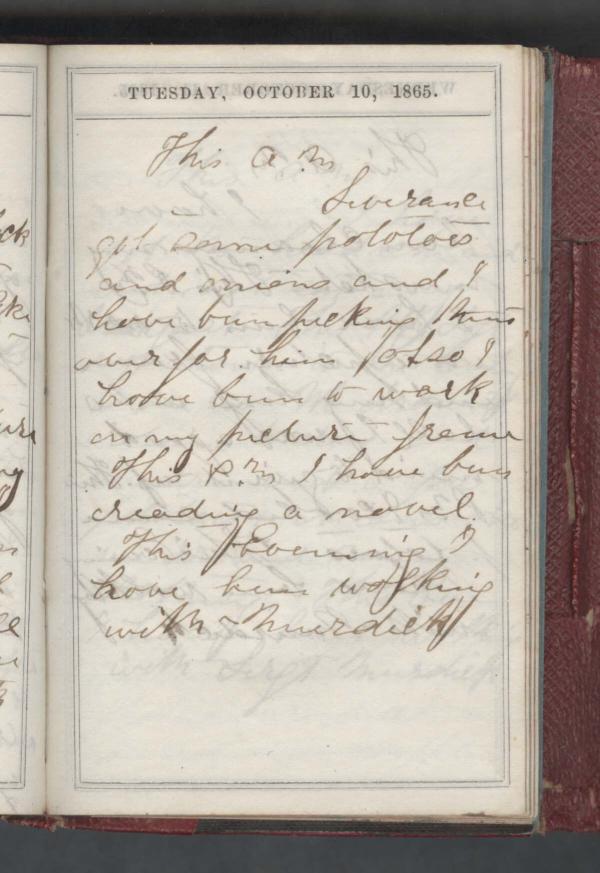 TUESDAY, OCTOBER 10, 1865.
This a.m
Severance
got some pototoes
and onions and I
have bun picking them
over for him also I
have bun to work
on my picture frame
This P.m I have bun
reading a novel
This Evenning I
have bun walking
with Murdick
with Sergt Murdick